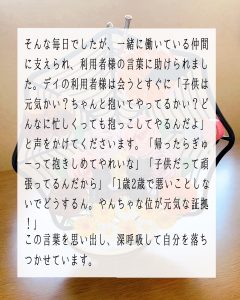 そんな毎日でしたが、一緒に働いている仲間
に支えられ、利用者様の言葉に助けられまし
た。デイの利用者様は会うとすぐに「子供は
元気かい？ちゃんと抱いてやってるかい？ど
んなに忙しくっても抱っこしてやるんだよ」
と声をかけてくださいます。「帰ったらぎゅ
ーって抱きしめてやれいな」「子供だって頑
張ってるんだから」「1歳2歳で悪いことしな
いでどうするん。やんちゃな位が元気な証拠
！」
この言葉を思い出し、深呼吸して自分を落ち
つかせています。